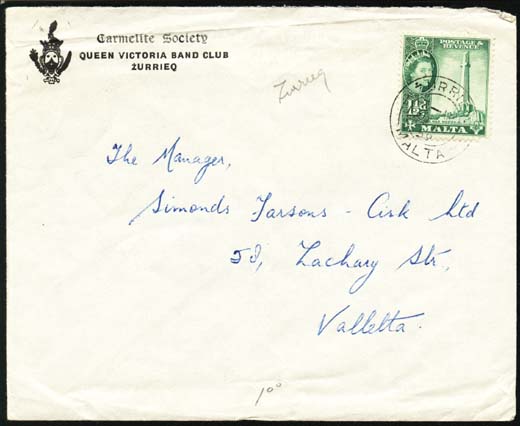 Carmelite Society
QUEEN VICTORIA BAND CLUB
ŻURRIEQ
Zurrieq
POSTAGE
REVENUE
1½d
MALTA
MALTA
The Manager,
Simonds Farsons - Cisk Ltd
58, Zachary Str.,
Valletta.
100